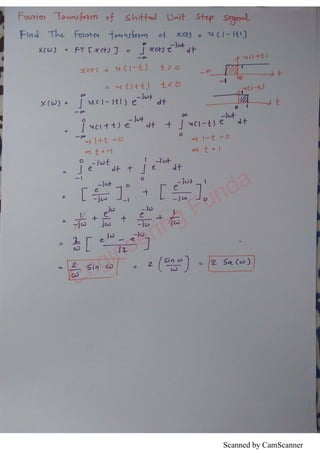 Fourier Transform of Shifted Unit Step Signal
Find The Fourier transform of x(t) = u(1-|t|)
X(ω) = FT[x(t)] = ∫_{-∞}^{∞} x(t) e^{-jωt} dt
x(t) = u(1-t) t>0
= u(1+t) t<0
u(1+t)
-∞ -1 0 t
u(1-t)
0 1 t
X(ω) = ∫_{-∞}^{∞} u(1-|t|) e^{-jωt} dt
= ∫_{-∞}^{0} u(1+t) e^{-jωt} dt + ∫_{0}^{∞} u(1-t) e^{-jωt} dt
⇒ 1+t=0 ⇒ 1-t=0
⇒ t=-1 ⇒ t=1
= ∫_{-1}^{0} e^{-jωt} dt + ∫_{0}^{1} e^{-jωt} dt
= [e^{-jωt}/-jω]_{-1}^{0} + [e^{-jωt}/-jω]_{0}^{1}
= 1/-jω + e^{jω}/jω + e^{-jω}/-jω + 1/jω
= 2/ω [e^{jω} - e^{-jω}/j2]
= 2/ω Sin ω = 2 (sin ω/ω) = 2 Sa(ω)
Engineering Funda
Scanned by CamScanner